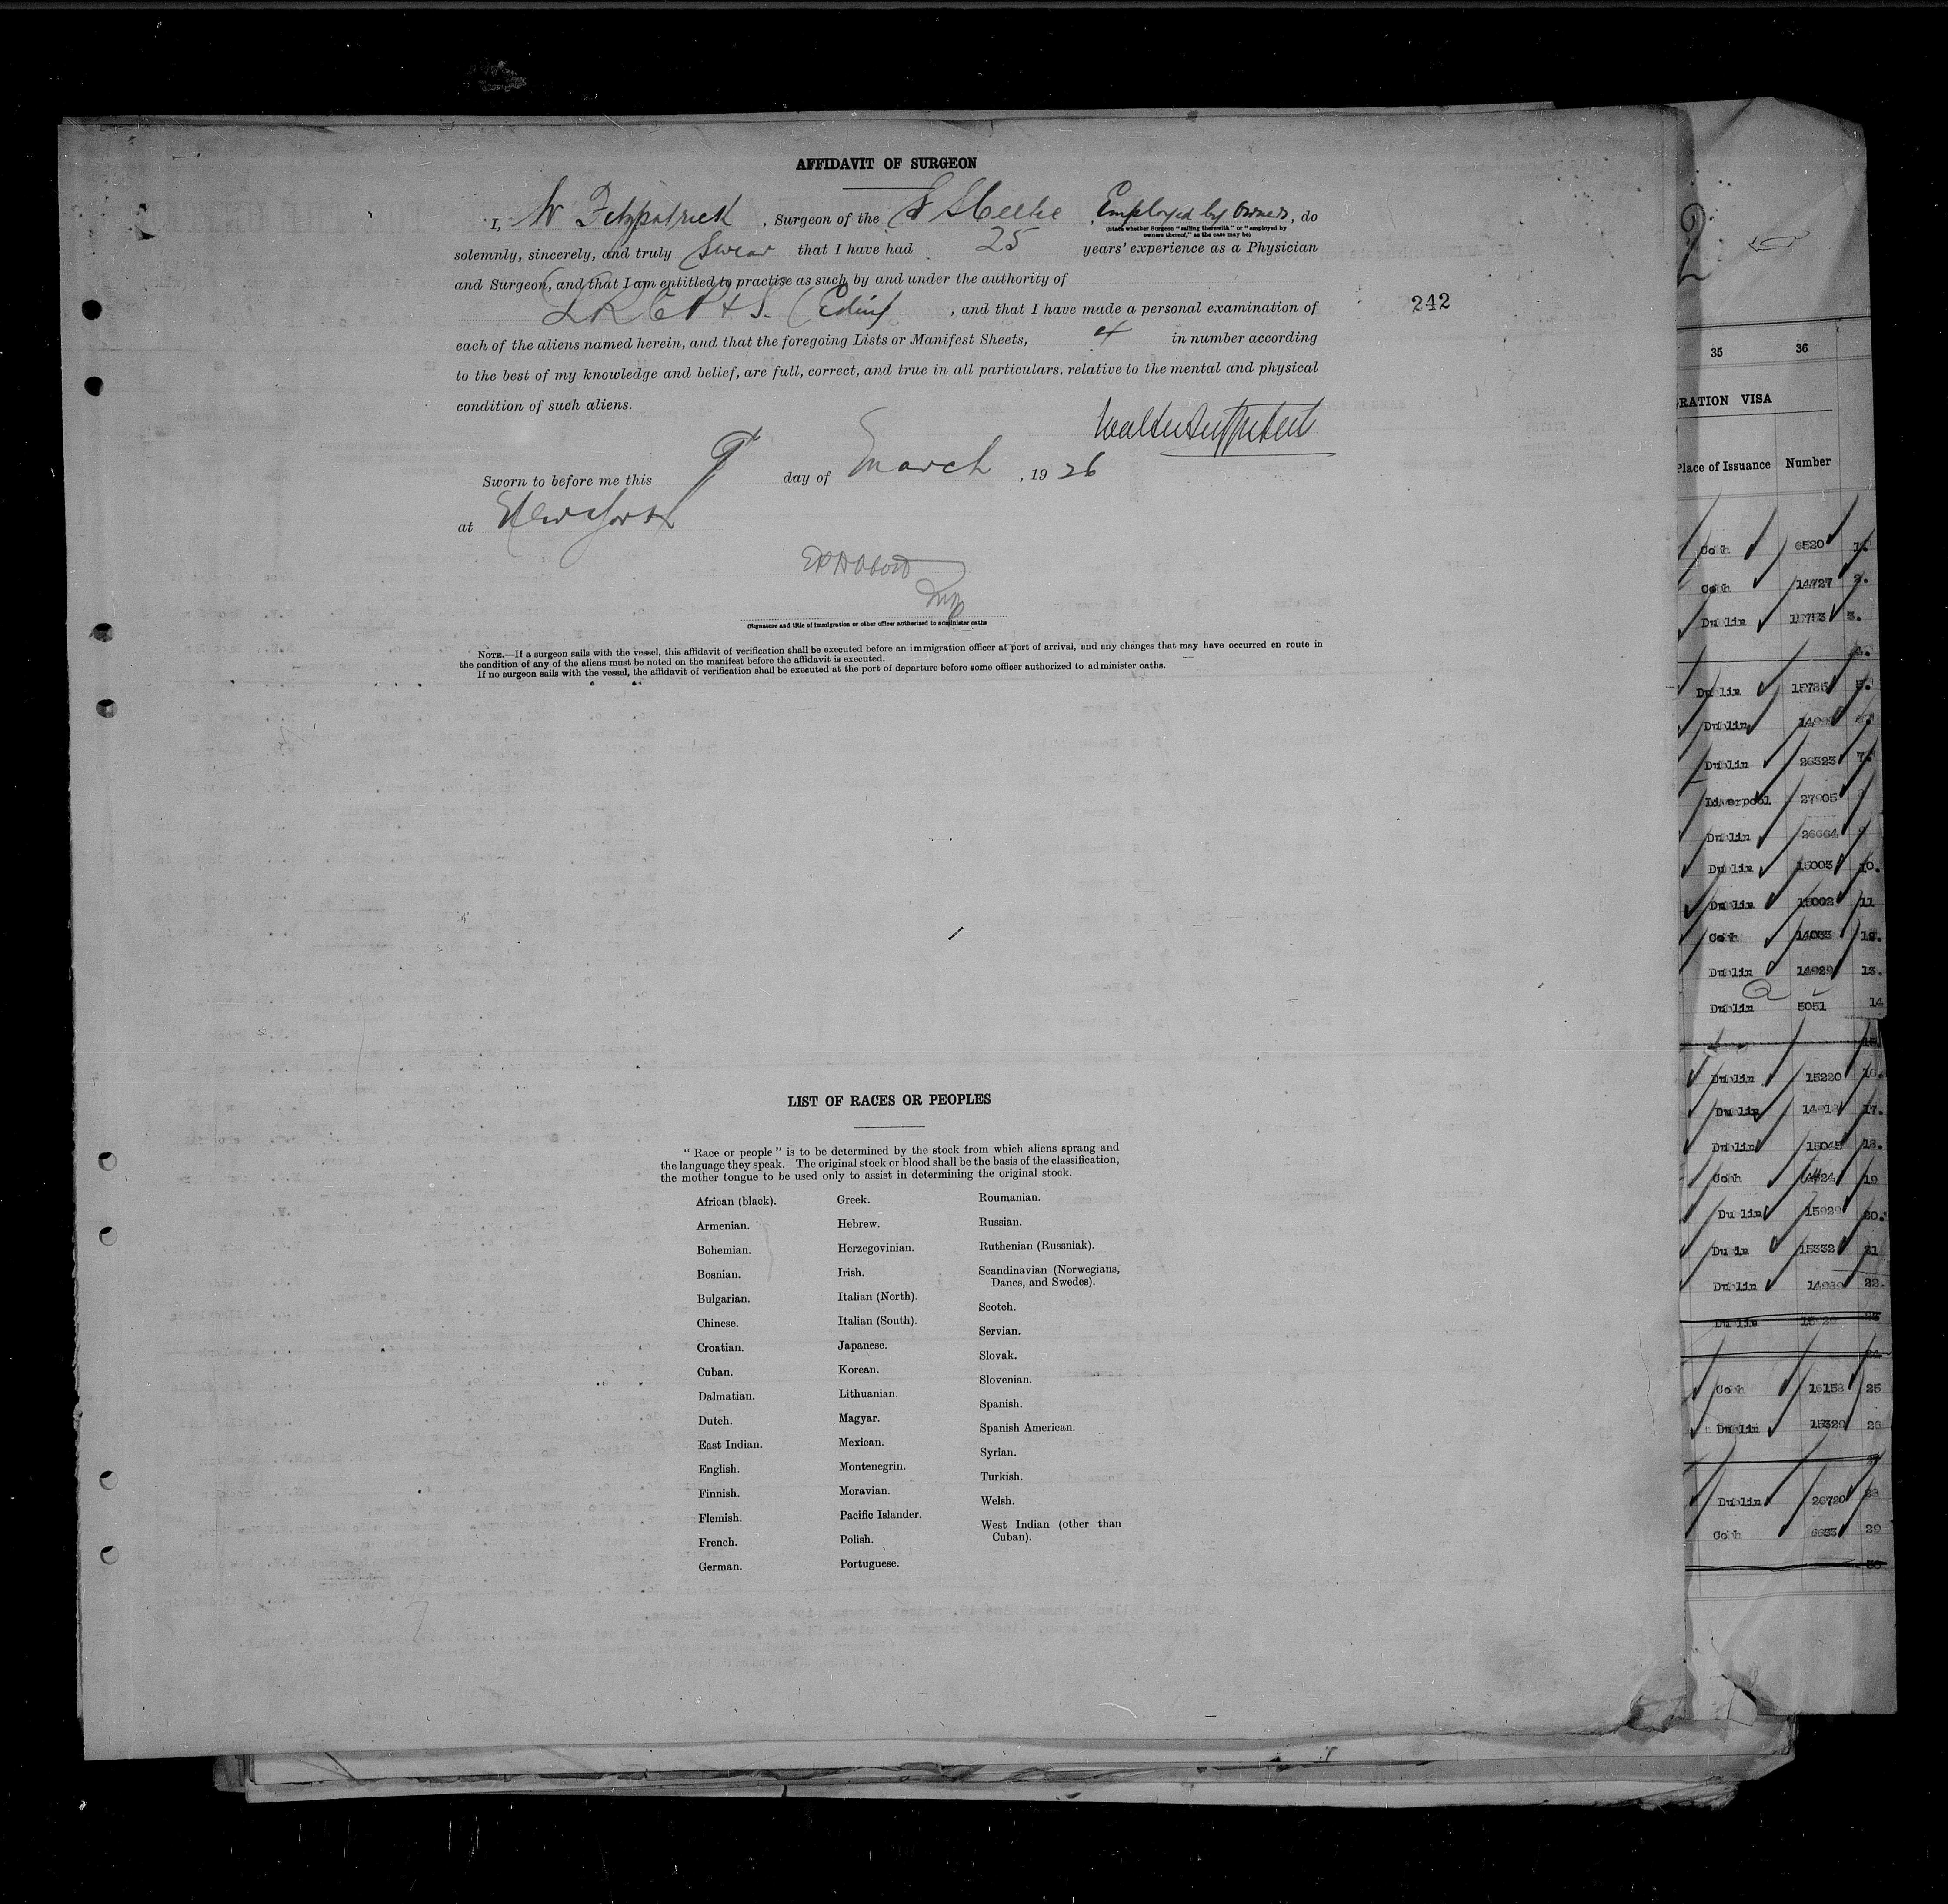 AFFIDAVIT OF SURGEON
I, W Fitzpatrick, Surgeon of the SS Celtic, Employed by Owners, do
(State whether Surgeon "sailing therewith" or "employed by
owners thereof," as the case may be)
solemnly, sincerely, and truly swear that I have had 25 years' experience as a Physician
and Surgeon, and that I am entitled to practise as such by and under the authority of
LRCP & S. (Edin), and that I have made a personal examination of
242
each of the aliens named herein, and that the foregoing Lists or Manifest Sheets, 4 in number according
to the best of my knowledge and belief, are full, correct, and true in all particulars, relative to the mental and physical
condition of such aliens.
Walter
Sworn to before me this day of March, 1926
at New York
(Signature and title of immigration or other officer authorized to administer oaths
NOTE.—If a surgeon sails with the vessel, this affidavit of verification shall be executed before an immigration officer at port of arrival, and any changes that may have occurred en route in
the condition of any of the aliens must be noted on the manifest before the affidavit is executed.
If no surgeon sails with the vessel, the affidavit of verification shall be executed at the port of departure before some officer authorized to administer oaths.
LIST OF RACES OR PEOPLES
"Race or people" is to be determined by the stock from which aliens sprang and
the language they speak. The original stock or blood shall be the basis of the classification,
the mother tongue to be used only to assist in determining the original stock.
African (black).
Armenian.
Bohemian.
Bosnian.
Bulgarian.
Chinese.
Croatian.
Cuban.
Dalmatian.
Dutch.
East Indian.
English.
Finnish.
Flemish.
French.
German.
Greek.
Hebrew.
Herzegovinian.
Irish.
Italian (North).
Italian (South).
Japanese.
Korean.
Lithuanian.
Magyar.
Mexican.
Montenegrin.
Moravian.
Pacific Islander.
Polish.
Portuguese.
Roumanian.
Russian.
Ruthenian (Russniak).
Scandinavian (Norwegians,
Danes, and Swedes).
Scotch.
Servian.
Slovak.
Slovenian.
Spanish.
Spanish American.
Syrian.
Turkish.
Welsh.
West Indian (other than
Cuban).
2
35 36
RATION VISA
Place of Issuance Number
Cobh 6520 1.
Cobh 14727 2.
Dublin 3.
Dublin 15785 5.
Dublin
Dublin 26323 7.
Liverpool 27905
Dublin 26664 9
Dublin 15003 10.
Dublin 15002 11
Cobh 14033 12.
Dublin 14929 13.
Dublin 5051 14
15.
Dublin 15220 16.
Dublin 17.
Dublin 15045 18.
Cobh 14424 19
Dublin 15929 20.
Dublin 15332 21
Dublin 22.
Dublin 23
24
Cobh 16158 25
Dublin 15329 26
27
Dublin 26720 28
Cobh 6633 29
30